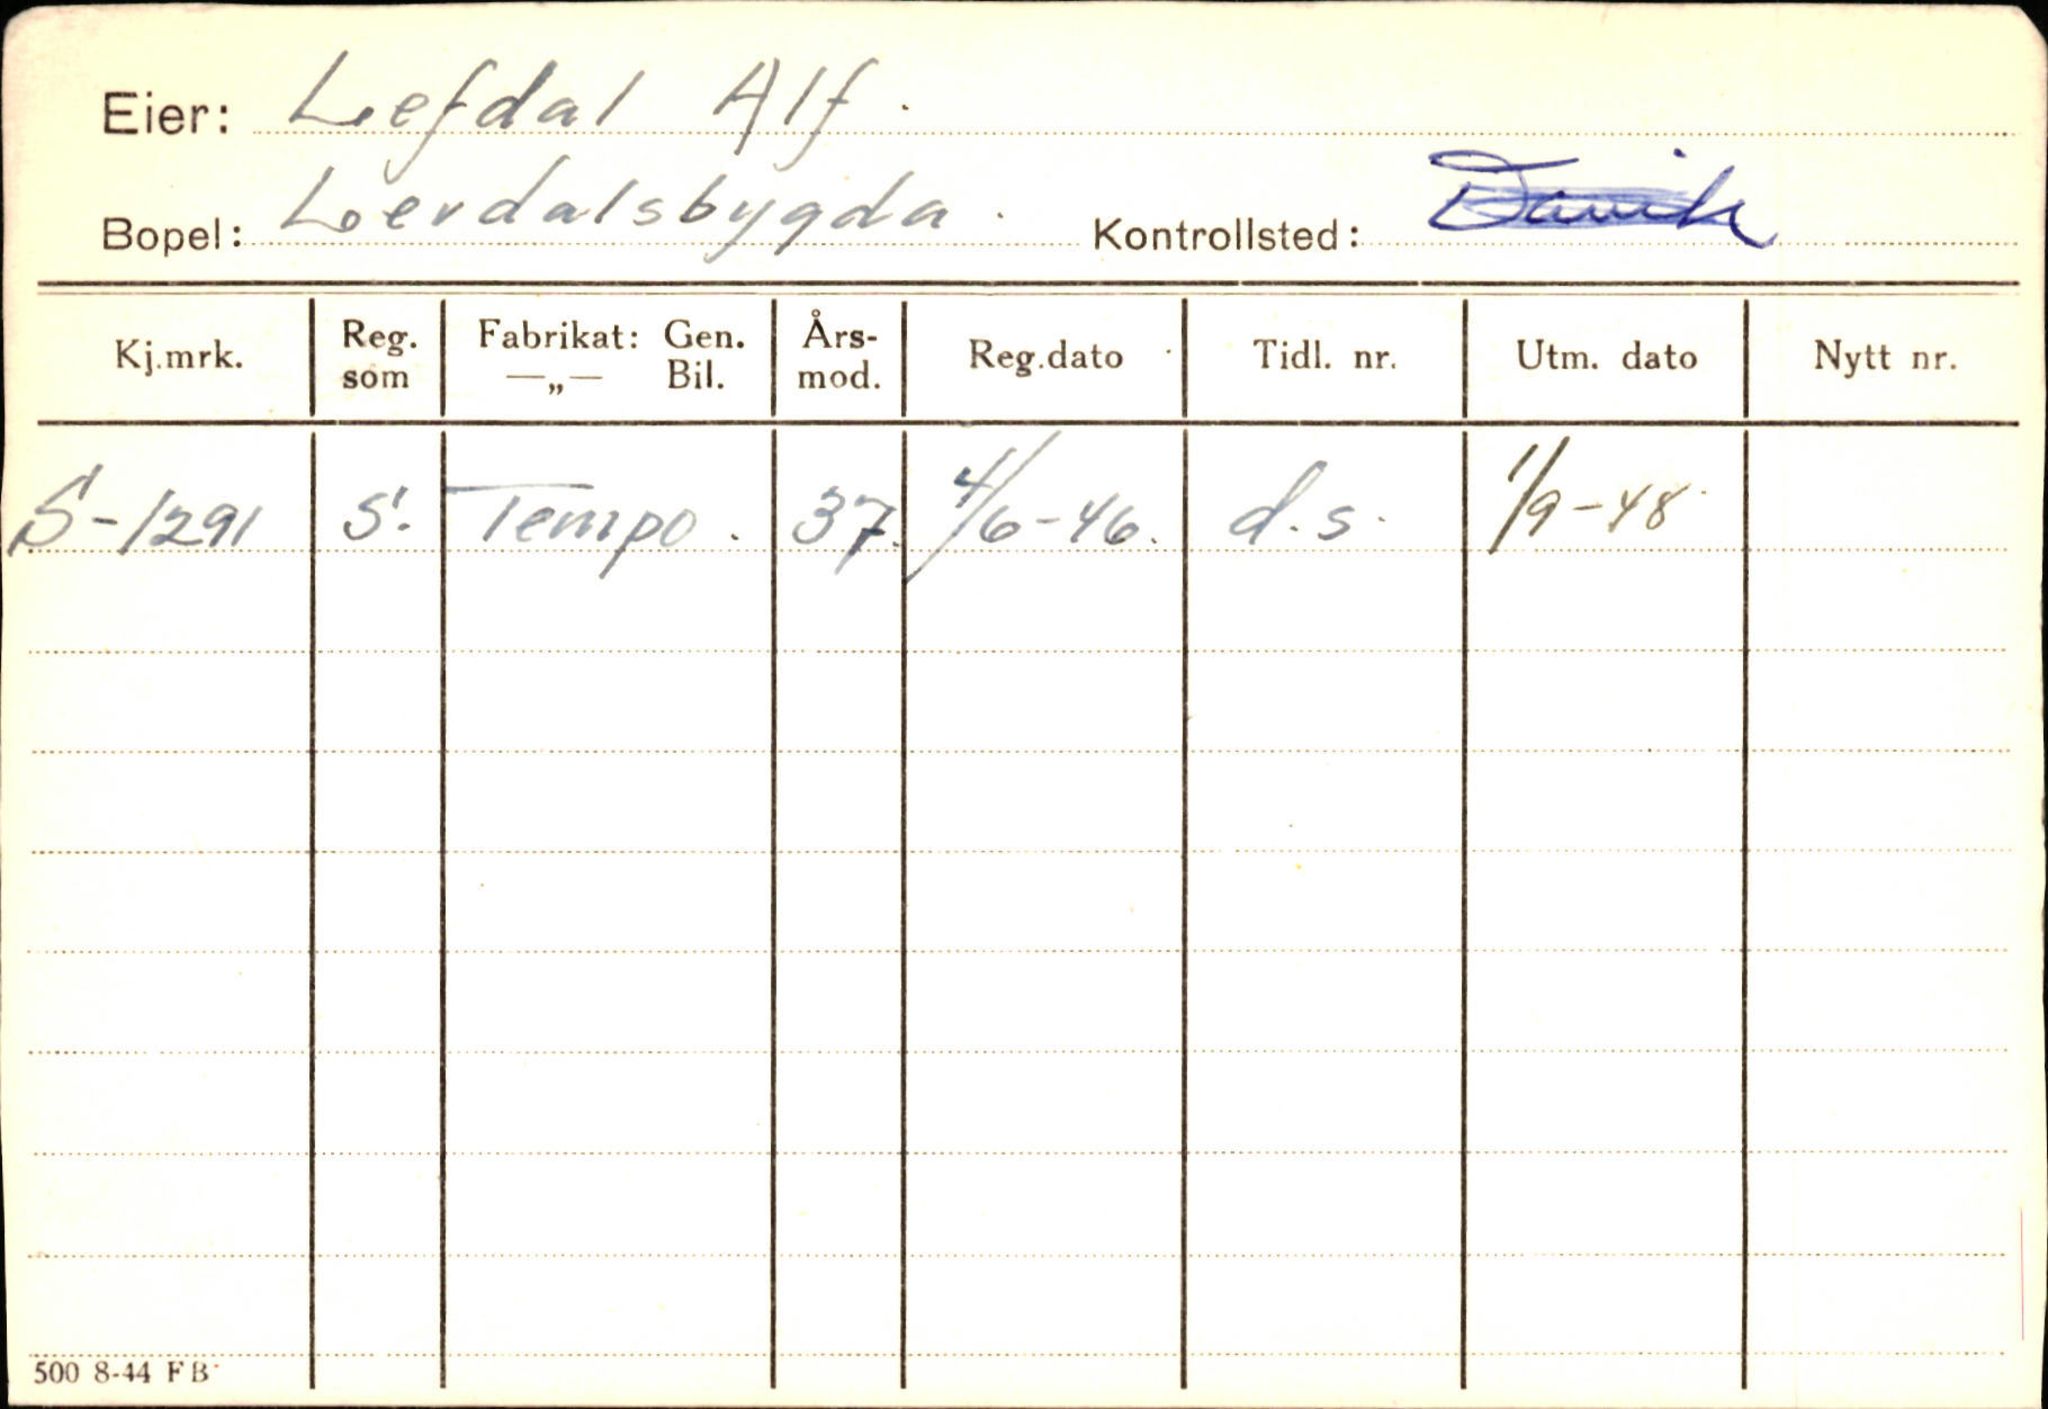 Eier: Lefdal Alf.
Bopel: Lerdalsbygda. Kontrollsted:
Kj.mrk. Reg. som Fabrikat: Gen. —„— Bil. Års- mod. Reg.dato Tidl. nr. Utm. dato Nytt nr.
S-1291 S. Tempo. 37. 4/6-46. d.s. 1/9-48
500 8-44 FB